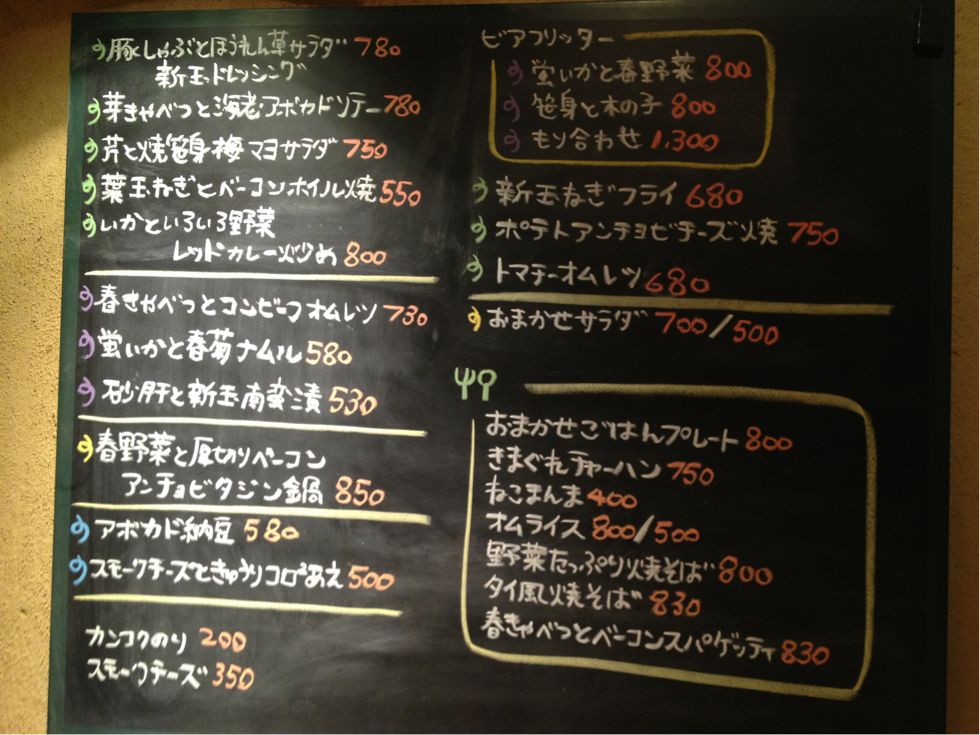 豚しゃぶとほうれん草サラダ 780
新玉ドレッシング
芽きゃべつと海老・アボカドソテー 780
芹と焼笹身梅マヨサラダ 750
葉玉ねぎとベーコンホイル焼 550
いかといろいろ野菜
レッドカレー炒め 800
春きゃべつとコンビーフオムレツ 730
蛍いかと春菊ナムル 580
砂肝と新玉南蛮漬 530
春野菜と厚切りベーコン
アンチョビタジン鍋 850
アボカド納豆 580
スモークチーズときゅうりコロコロあえ 500
カンコクのり 200
スモークチーズ 350
ビアフリッター
蛍いかと春野菜 800
笹身と木の子 800
もり合わせ 1,300
新玉ねぎフライ 680
ポテトアンチョビチーズ焼 750
トマチーオムレツ 680
おまかせサラダ 700/500
おまかせごはんプレート 800
きまぐれチャーハン 750
ねこまんま 400
オムライス 800/500
野菜たっぷり焼そば 800
タイ風焼そば 830
春きゃべつとベーコンスパゲッティ 830